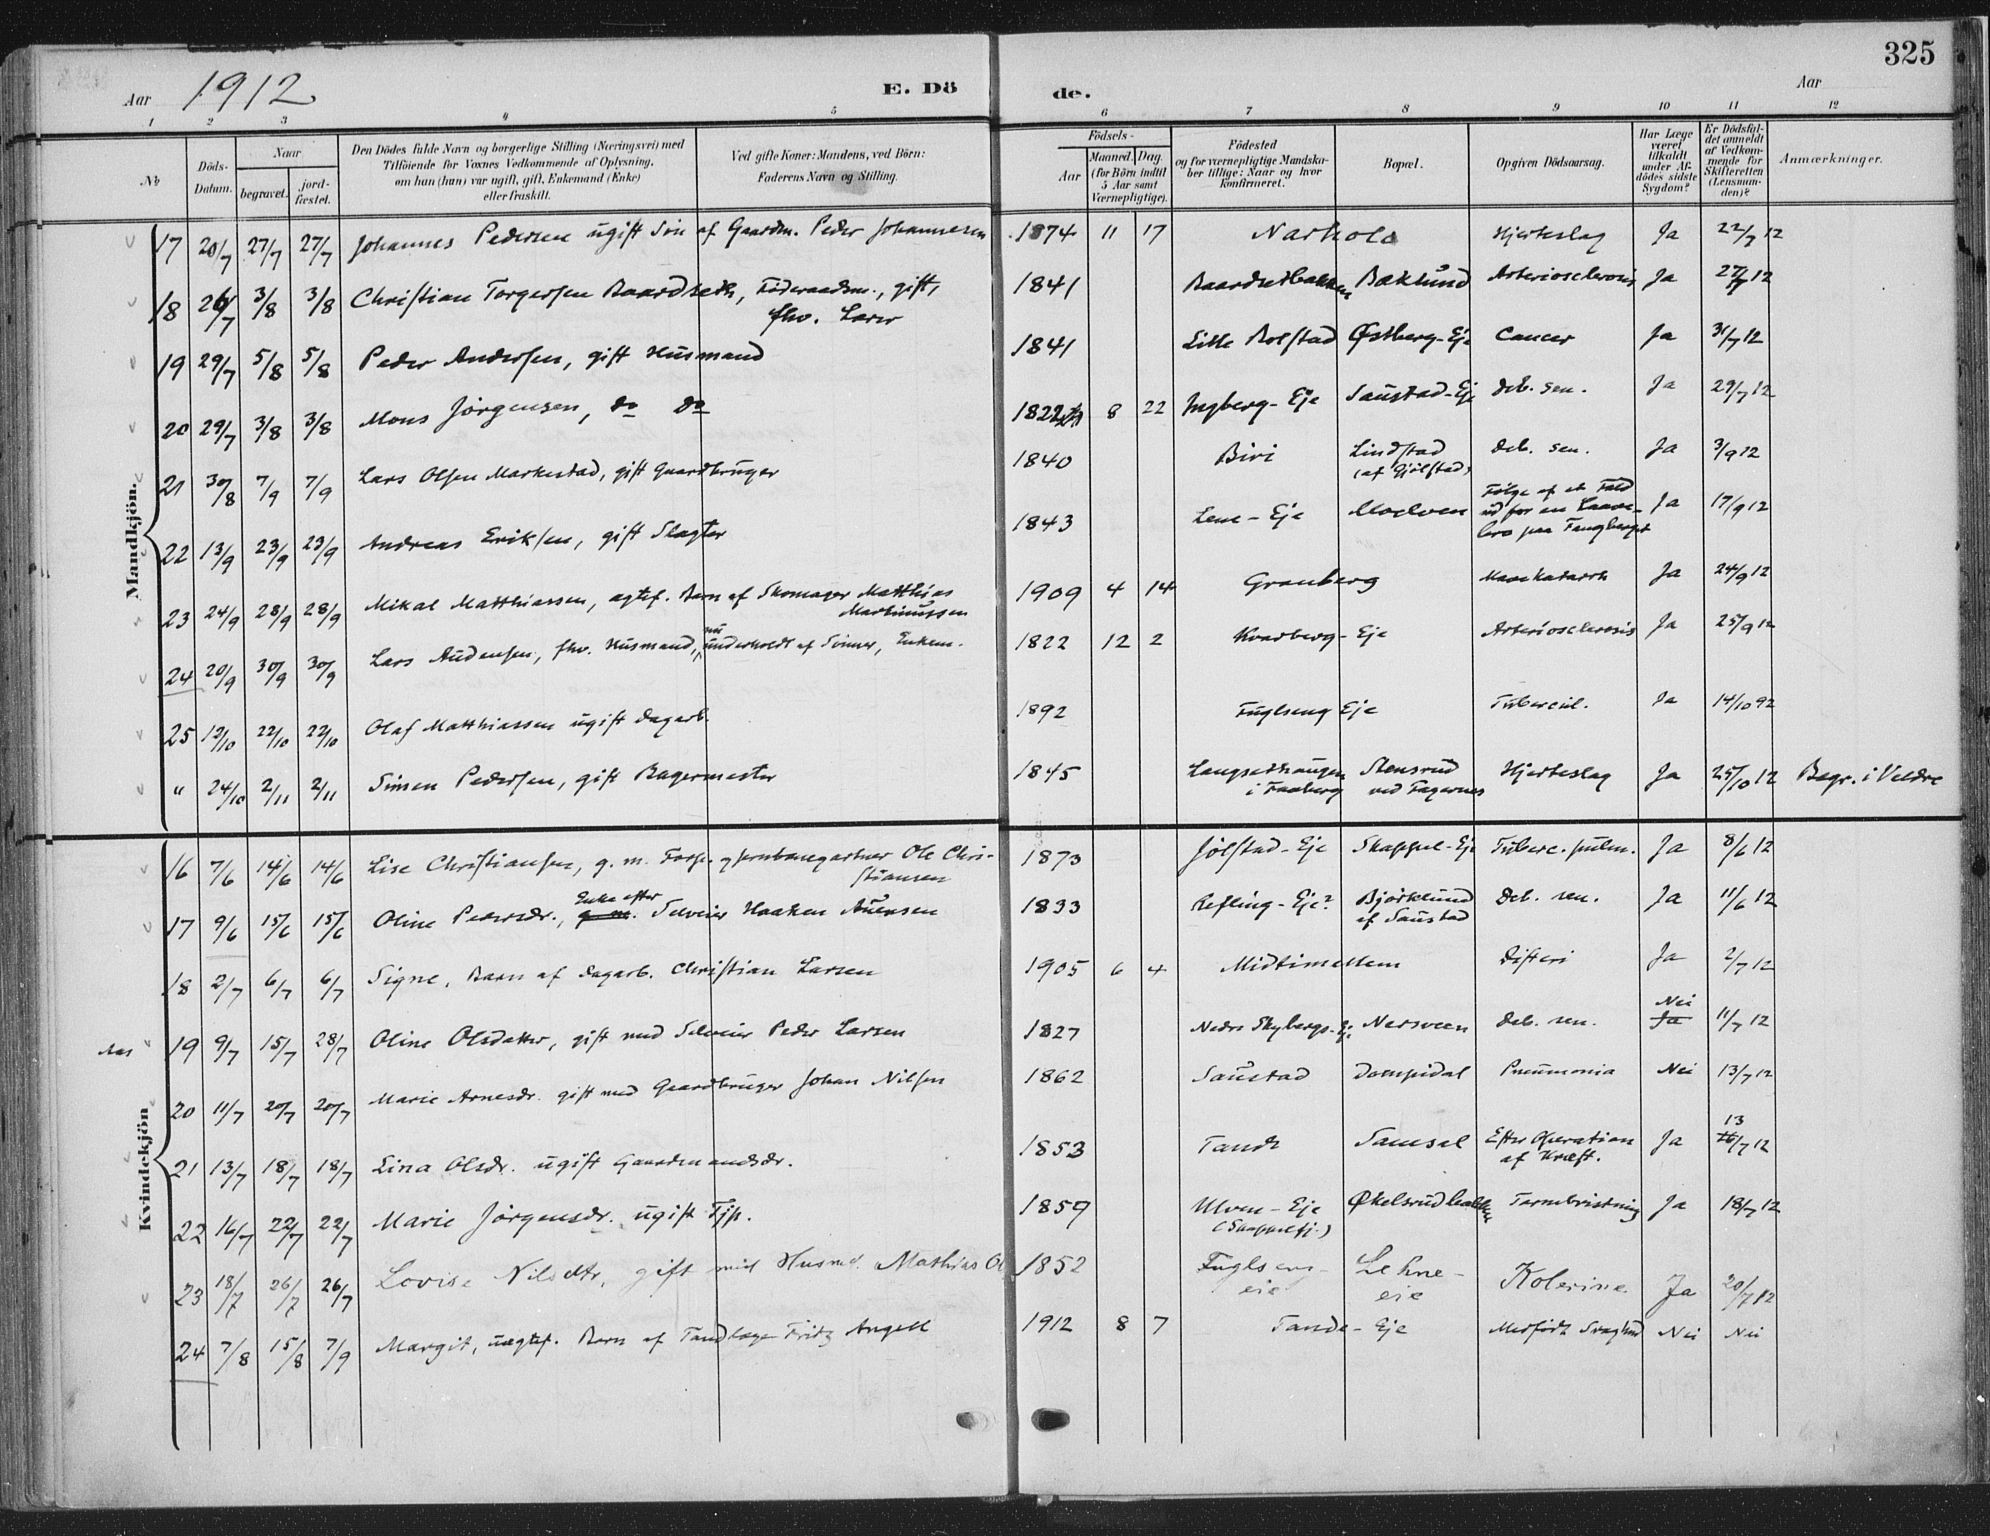 325
Aar 1912 E. Dö de. Aar
1 2 3 4 5 6 7 8 9 10 11 12
No
Döds-Datum.
Naar
begravet.
jord-fæstet.
Den Dödes fulde Navn og borgerlige Stilling (Næringsvei) med
Tilföiende for Voxnes Vedkommende af Oplysning,
om han (hun) var ugift, gift, Enkemand (Enke)
eller fraskilt.
Ved gifte Koner: Mandens, ved Börn:
Faderens Navn og Stilling.
Födsels-
Aar
Maaned. Dag.
(for Börn indtil
5 Aar samt
Værnepligtige).
Födested
og for værnepligtige Mandska-
ber tillige: Naar og hvor
konfirmeret.
Bopæl.
Opgiven Dödsaarsag.
Har Læge
været
tilkaldt
under Af-
dödes sidste
Sygdom?
Er Dödsfal-
det anmeldt
af Vedkom-
mende for
Skifteretten
(Lensman-
den)?
Anmærkninger.
Mandkjön.
17 20/7 27/7 27/7 Johannes Pedersen ugift Søn af Gaardm. Peder Johannesen 1874 11 17 Hjerteslag Ja 22/7 12
18 26/7 3/8 3/8 Christian Torgersen Baardseth, Føderaadsm., gift, 1841 Baardsetbakken Baklund Arteriosclerosis Ja 27/7 12
fhv. Lærer
19 29/7 5/8 5/8 Peder Andersen, gift Husmand 1841 Lille Rolstad Østberg-Eje Cancer Ja 31/7 12
20 29/7 3/8 3/8 Mons Jørgensen, do do 1822 8 22 Eje Saustad-Eje deb. sen. Ja 29/7 12
21 30/8 7/9 7/9 Lars Olsen Markestad, gift Gaardbruger 1840 Biri Lindstad deb. sen. Ja 3/9 12
22 13/9 23/9 23/9 Andreas Eriksen, gift Slagter 1843 Lene-Eje Moelven Følge af et Fald Ja 17/9 12
ud for en
paa Fangberget
23 24/9 28/9 28/9 Mikal Matthiassen, ægtef. Barn af Skomager Matthias 1909 4 14 Granberg Ja 24/9 12
Martinussen
24 20/9 30/9 30/9 Lars Audensen, fhv. Husmand, nu underholdt af Sønner, Enkem. 1822 12 2 Kvarberg-Eje Arteriosclerosis Ja 25/9 12
25 12/10 22/10 22/10 Olaf Matthiassen ugift dagarb. 1892 Fuglseng Eje Tubercul. Ja 14/10 92
" 24/10 2/11 2/11 Simen Pedersen, gift Bagermester 1845 Langsethaugen Stensrud Hjerteslag Ja 25/10 12 Begr. i Veldre
i Faaberg ved Fagernes
Kvindekjön
16 7/6 14/6 14/6 Lise Christiansen, g. m. Forp. og Jernbanegartner Ole Chri- 1873 Jølstad-Eje Skappel-Eje Tuberc. pulm. Ja 8/6 12
stiansen
17 9/6 15/6 15/6 Oline Pedersdr., Enke efter Selveier Haaken Auensen 1833 Refling-Eje? Bjørklund deb. sen. Ja 11/6 12
af Saustad
18 2/7 6/7 6/7 Signe, Barn af dagarb. Christian Larsen 1905 6 4 Midtimellem Difteri Ja 2/7 12
Aas 19 9/7 15/7 28/7 Oline Olsdatter, gift med Selveier Peder Larsen 1827 Nedre Skybergs-Ej. Nersveen deb. sen. Nei Ja 11/7 12
20 11/7 20/7 20/7 Marie Arnesdr. gift med Gaardbruger Johan Nilsen 1862 Saustad Dompidal Pneumonia Nei 13/7 12
21 13/7 18/7 18/7 Lina Olsdr. ugift Gaardmandsdr. 1853 Tande Samsal Efter Operation Ja 13/7 12
af Kræft.
22 16/7 22/7 22/7 Marie Jørgensdr. ugift Tjp. 1859 Ulven-Eje Økelsrudbakken Tarmbristning Ja 18/7 12
23 18/7 26/7 26/7 Lovise Nilsdtr, gift med Husmd. Mathias Ol 1852 Fuglseng- Lehne- Kolerine Ja 20/7 12
eie eie
24 7/8 15/8 7/9 Margit, uægtef. Barn af Tandlæge Fritz Angell 1912 8 7 Tande-Eje Medfødt Svaghed Nei Nei